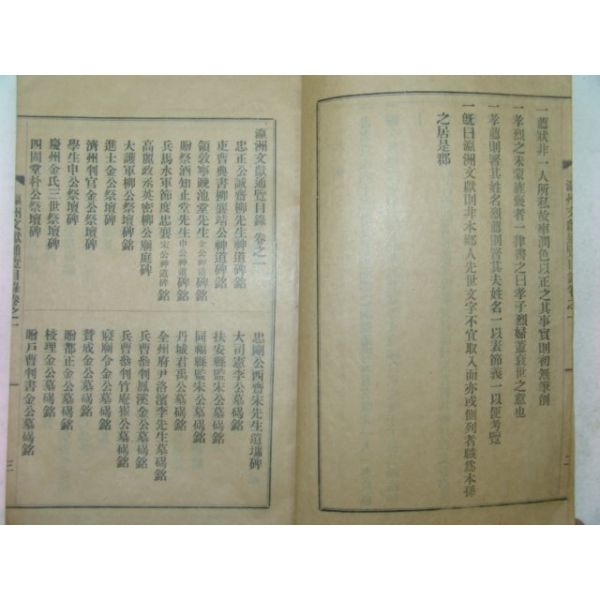 一薦狀非一人所私故率潤色以正之其事實則初無筆削
一孝烈之未蒙旌褒者一律書之曰孝子烈婦蓋衰世之意也
一孝薦則書其姓名烈薦則書其夫姓名一以表節義一以便考覽
一旣曰文獻則非本鄕人先世文字不宜取入而亦或側列者職爲本孫
之居是鄕
瀛洲文獻通覽目錄 卷之一
忠正公誠齋柳先生神道碑銘
吏曹典書柳公神道碑銘
領敦寧錢池堂先生金公神道碑銘
贈祭酒知止堂先生申公神道碑銘
兵馬水軍節度忠襄宋公神道碑銘
高麗政丞英密柳公廟庭碑
大護軍柳公祭壇碑銘
進士金公祭壇碑銘
濟州判官金公祭壇碑
學生申公祭壇碑
慶州金氏三世祭壇碑
四固堂朴公祭壇碑
忠剛公西齋宋先生遺墟碑
大司憲李公墓碣銘
扶安縣監宋公墓碣銘
同福縣監宋公墓碣銘
丹城君禹公墓碣銘
全州府尹洛濱李先生墓碣銘
兵曹參判鳳溪金公墓碣銘
兵曹參判竹庵崔公墓碣銘
寢廟令金公墓碣銘
贊成金公墓碣銘
贈都正金公墓碣銘
校理金公墓碣銘
贈戶曹判書金公墓碣銘
三